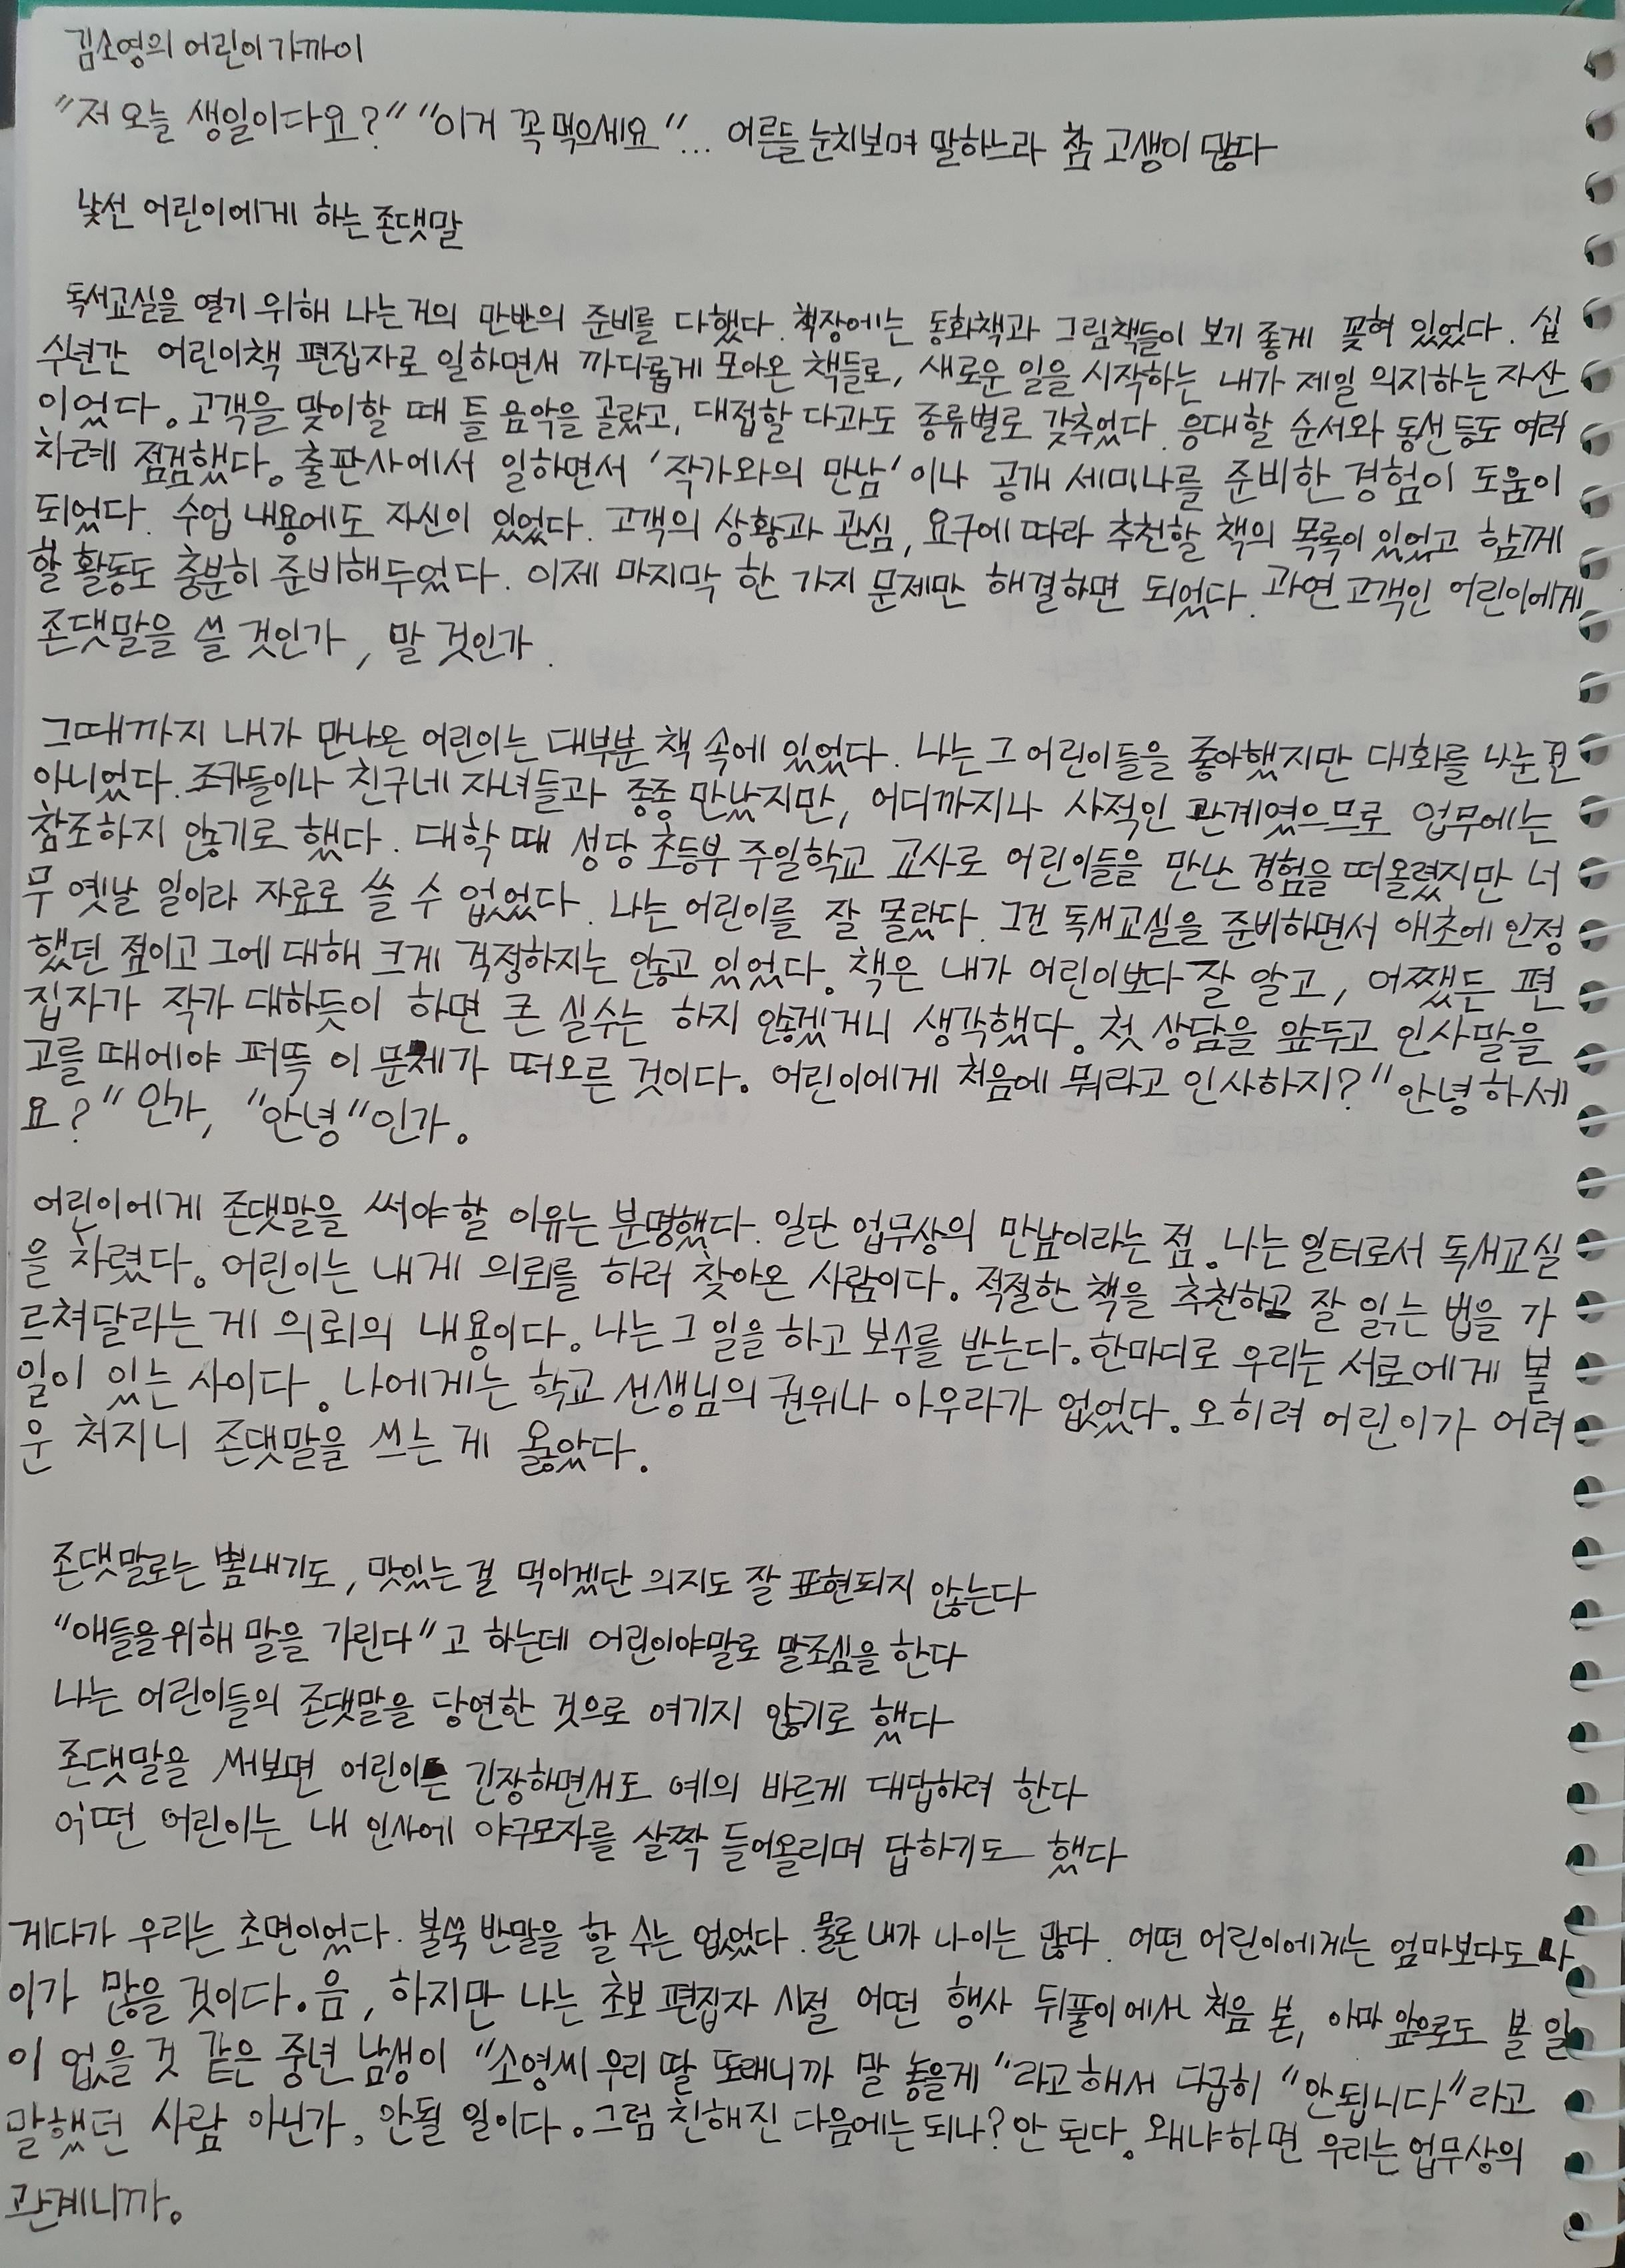 김소영의 어린이 가까이
"저 오늘 생일이다요?" "이거 꼭 먹으세요"... 어른들 눈치보며 말하느라 참 고생이 많다
낯선 어린이에게 하는 존댓말
독서교실을 열기 위해 나는 거의 만반의 준비를 다했다. 책장에는 동화책과 그림책들이 보기 좋게 꽂혀 있었다. 십
수년간 어린이책 편집자로 일하면서 까다롭게 모아온 책들로, 새로운 일을 시작하는 내가 제일 의지하는 자산
이었다. 고객을 맞이할 때 틀 음악을 골랐고, 대접할 다과도 종류별로 갖추었다. 응대할 순서와 동선 등도 여러
차례 점검했다. 출판사에서 일하면서 '작가와의 만남'이나 공개 세미나를 준비한 경험이 도움이
되었다. 수업 내용에도 자신이 있었다. 고객의 상황과 관심, 요구에 따라 추천할 책의 목록이 있었고 함께
할 활동도 충분히 준비해두었다. 이제 마지막 한 가지 문제만 해결하면 되었다. 과연 고객인 어린이에게
존댓말을 쓸 것인가, 말 것인가.
그때까지 내가 만나온 어린이는 대부분 책 속에 있었다. 나는 그 어린이들을 좋아했지만 대화를 나눈 건
아니었다. 조카들이나 친구네 자녀들과 종종 만났지만, 어디까지나 사적인 관계였으므로 업무에는
참조하지 않기로 했다. 대학 때 성당 초등부 주일학교 교사로 어린이들을 만난 경험을 떠올렸지만 너
무 옛날 일이라 자료로 쓸 수 없었다. 나는 어린이를 잘 몰랐다. 그건 독서교실을 준비하면서 애초에 인정
했던 점이고 그에 대해 크게 걱정하지는 않고 있었다. 책은 내가 어린이보다 잘 알고, 어쨌든 편
집자가 작가 대하듯이 하면 큰 실수는 하지 않겠거니 생각했다. 첫 상담을 앞두고 인사말을
고를 때에야 퍼뜩 이 문제가 떠오른 것이다. 어린이에게 처음에 뭐라고 인사하지? "안녕하세
요?" 인가, "안녕"인가.
어린이에게 존댓말을 써야할 이유는 분명했다. 일단 업무상의 만남이라는 점. 나는 일터로서 독서교실
을 차렸다. 어린이는 내게 의뢰를 하러 찾아온 사람이다. 적절한 책을 추천하고 잘 읽는 법을 가
르쳐달라는 게 의뢰의 내용이다. 나는 그 일을 하고 보수를 받는다. 한마디로 우리는 서로에게 볼
일이 있는 사이다. 나에게는 학교 선생님의 권위나 아우라가 없었다. 오히려 어린이가 어려
운 처지니 존댓말을 쓰는 게 옳았다.
존댓말로는 뽐내기도, 맛있는 걸 먹이겠단 의지도 잘 표현되지 않는다
"애들을위해 말을 가린다"고 하는데 어린이야말로 말조심을 한다
나는 어린이들의 존댓말을 당연한 것으로 여기지 않기로 했다
존댓말을 써보면 어린이든 긴장하면서도 예의 바르게 대답하려 한다
어떤 어린이는 내 인사에 야구모자를 살짝 들어올리며 답하기도 했다
게다가 우리는 초면이었다. 불쑥 반말을 할 수는 없었다. 물론 내가 나이는 많다. 어떤 어린이에게는 엄마보다도 나
이가 많을 것이다. 음, 하지만 나는 초보 편집자 시절 어떤 행사 뒤풀이에서 처음 본, 아마 앞으로도 볼 일
이 없을 것 같은 중년 남생이 "소영씨 우리 딸 또래니까 말 놓을게"라고 해서 다급히 "안됩니다"라고
말했던 사람 아닌가. 안될 일이다. 그럼 친해진 다음에는 되나? 안 된다. 왜냐하면 우리는 업무상의
관계니까.